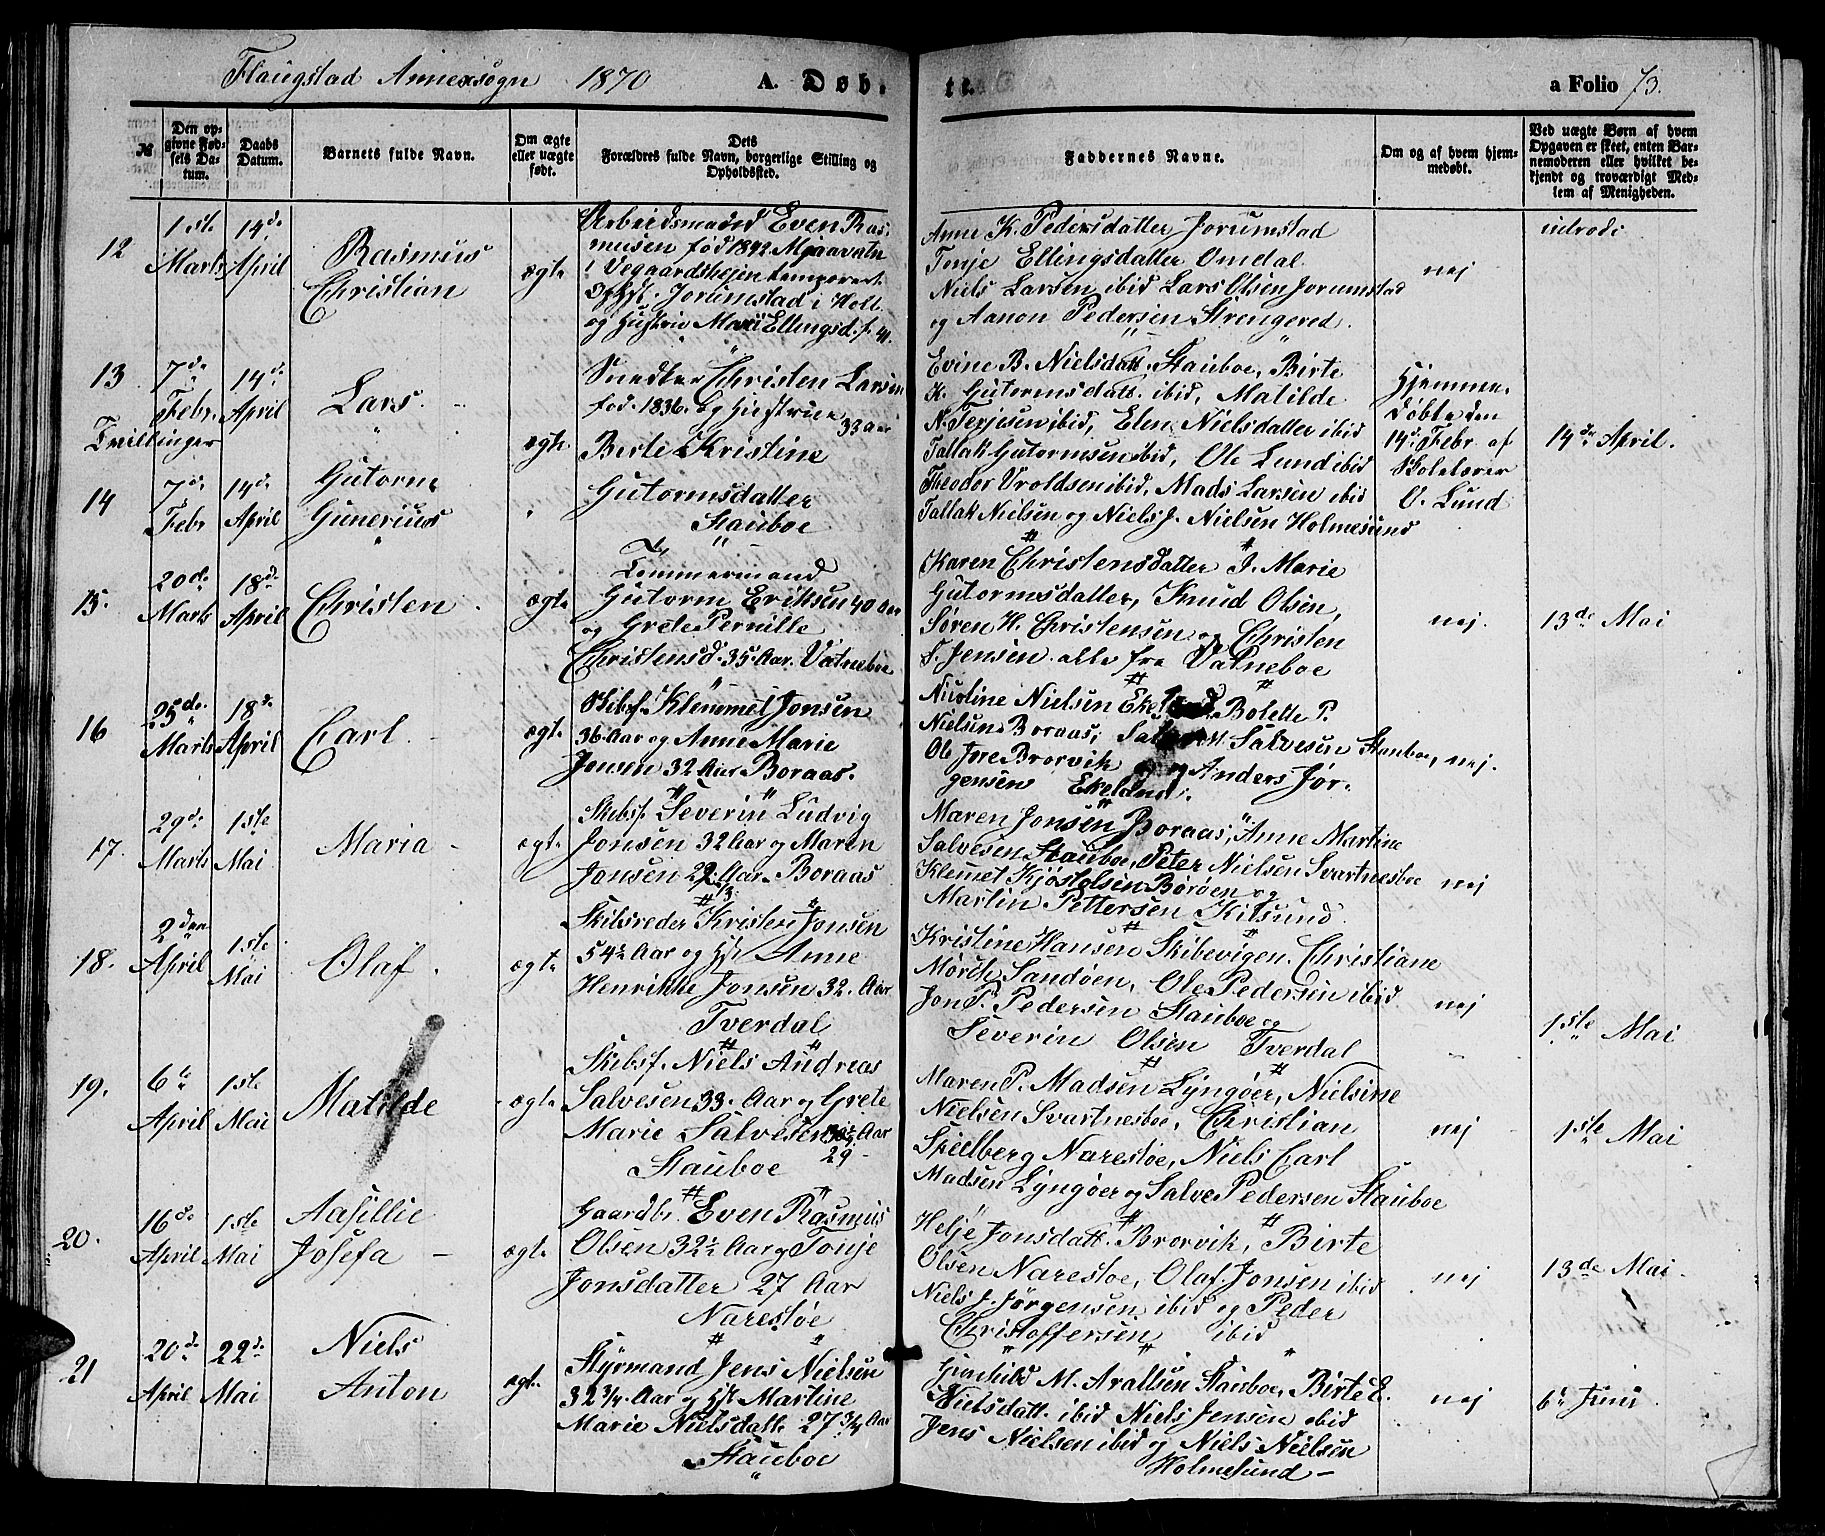 Flaugstad Annexsogn 1870 A. Døb- te. a Folio 73.
№
Den op-
givne Fød-
sels Da-
tum.
Daabs
Datum.
Barnets fulde Navn.
Om ægte
eller uægte
født.
Dets
Forældres fulde Navn, borgerlige Stilling og
Opholdssted.
Faddernes Navne.
Om og af hvem hjem-
medøbt.
Ved uægte Børn af hvem
Opgaven er skeet, enten Bar-
nemoderen eller hvilket be-
kjendt og troværdigt Med-
lem af Menigheden.
12
1ste Marts
14de April
Rasmus
Christian
ægte
Arbeidsmand Even Ras-
musen fød 1842 Mjaavatn
i Vegaardsheien
Jorumstad i Holt
og Hustrue Mari Ellingsd. f. 41.
Anne K. Pedersdatter Jorumstad
Tonje Ellingsdatter Omdal
Niels Larsen ibid Lars Olsen Jorumstad
og Aanon Pedersen Strengered.
nej
udvode
13
7de Febr.
14de April
Lars.
Tvillinger
ægte
Snedker Christen Larsen
fød. 1836. og Hustrue
33 Aar
Berte Kristine
Gutormsdatter
Stauboe
Evine B. Nielsdatt. Stauboe, Birte
K. Gutormsdatt. ibid, Matilde
N. Terjesen ibid, Elen Nielsdatter ibid
Tallak Gutormsen ibid, Ole Lund ibid
Theodor Uroldsen ibid, Mads Larsen ibid
Tallak Nielsen og Niels J. Nielsen Holmesund
Hjemme-
døbte den
14de Febr. af
Skolelærer
O. Lund
14de April.
14
7de Febr
14de April
Gutorm
Gunerius
15.
20de Marts
18de April
Christen
ægte
Tømmermand
Gutorm Eriksen 40 Aar
og Grete Pernille
Christensd. 35 Aar. Vatneboe
Karen Christensdatter I. Marie
Gutormsdatter, Knud Olsen,
Søren H. Christensen og Christen
F. Jensen alle fra Vatneboe
nej.
13de Mai
16
25de Marts
18de April
Carl
ægte
Skibsf. Klemmet Jonsen
36 Aar og Anne Marie
Jonsen 32 Aar Boraas.
Nicoline Nielsen Bolette P.
Nielsen Boraas, Salvesen Stauboe,
Ole Jore Brorvik og Anders Jør-
gensen Ekeland.
nej.
17.
29de Marts
1ste Mai
Maria
ægte
Skibsf. Severin Ludvig
Jonsen 32 Aar og Maren
Jonsen 22 Aar. Boraas
Maren Jonsen Boraas, Anne Martine
Salvesen Stauboe, Peter Nielsen Svartnesboe
Klemet Kjøstolsen Børøen og
Martin Pettersen Kilsund
nej
18.
2den April
1ste Mai
Olaf.
ægte
Skibsreder Kristen Jonsen
54½ Aar og Hst Anne
Henrikke Jonsen 32. Aar
Tverdal
Kristine Hansen Skibevigen. Christiane
Mørch Sandøen, Ole Pedersen ibid
Jon P. Pedersen Stauboe og
Severin Olsen Tverdal
nej
1ste Mai
19.
6te April
1ste Mai
Matilde
ægte
Skibsf. Niels Andreas
Salvesen 33 Aar og Grete
Marie Salvesen Aar
29
Stauboe
Maren P. Madsen Lyngøer, Nielsine
Nielsen Svartnesboe, Christian
Spilberg Narestøe, Niels Carl
Madsen Lyngøer og Salve Pedersen Stauboe
nej
1ste Mai
20.
16de April
1ste Mai
Aasillie
Josefa
ægte
Gaardbr. Even Rasmus
Olsen 32½ Aar og Tonje
Jonsdatter 27 Aar
Narestøe
Helje Jonsdatt. Brorvik, Birte
Olsen Narestoe, Olaf Jonsen ibid
Niels J. Jørgensen ibid og Peder
Christoffersen ibid
nej
13de Mai
21
20de April
22de Mai
Niels
Anton
ægte
Styrmand Jens Nielsen
32 3/4 Aar og Hst Martine
Marie Nielsdatt. 27 3/4 Aar
Stauboe
Gunhild M. Aralsen Stauboe, Birte E.
Nielsdatt. ibid Niels Jensen ibid
Jens Nielsen ibid og Niels Nielsen
Holmesund
nej
6te Juni